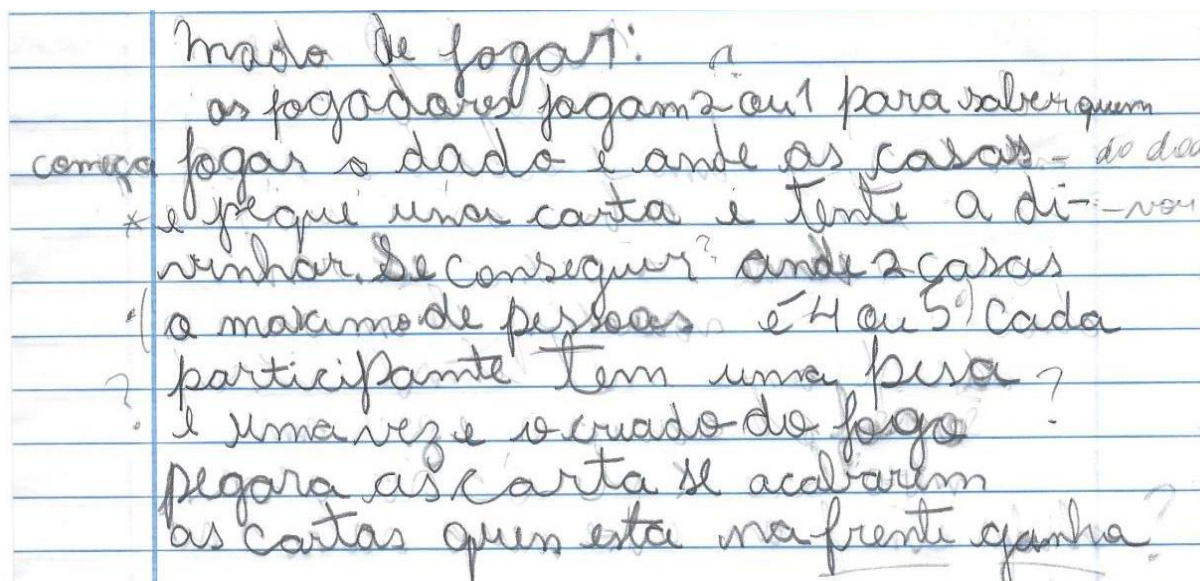 modo de jogar:
os jogadores jogam 2 ou 1 para saber quem
começa jogar o dado e ande as casas - do dad
* e peque uma carta e tente a di-
vinhar. Se conseguir? ande 2 casas
(o maximo de pessoas é 4 ou 5) Cada
participante tem uma pesa ?
? e uma vez e o criado do jogo
pegara as carta se acabarem
as cartas quem esta na frente ganha ?